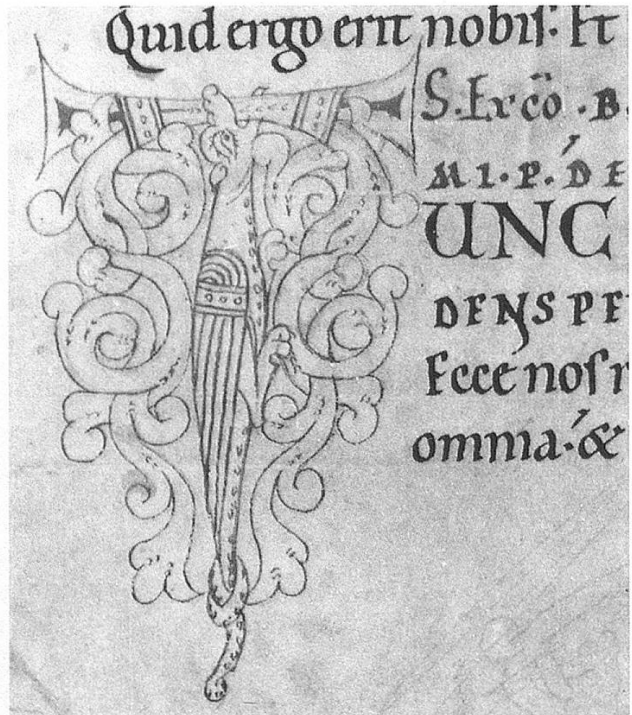 Quid ergo erit nobis. Et
S. Ex cō. B.
M I. P. D E
T UNC
DENS PE
Ecce nos r
omnia. &